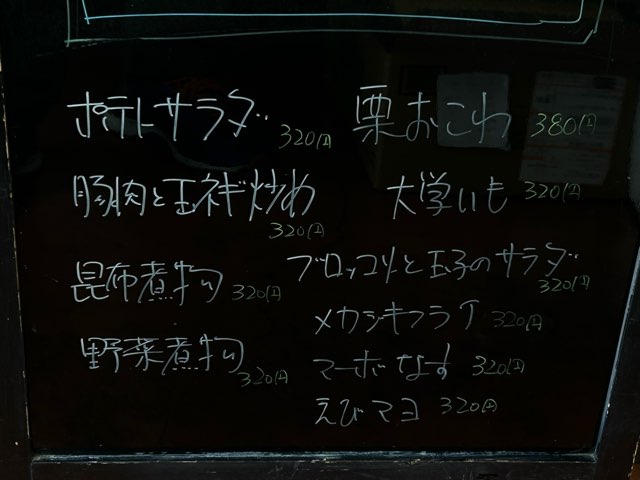 ポテトサラダ 320円
豚肉と玉ネギ炒め 320円
昆布煮物 320円
野菜煮物 320円
栗おこわ 380円
大学いも 320円
ブロッコリと玉子のサラダ 320円
メカジキフライ 320円
マーボなす 320円
えびマヨ 320円